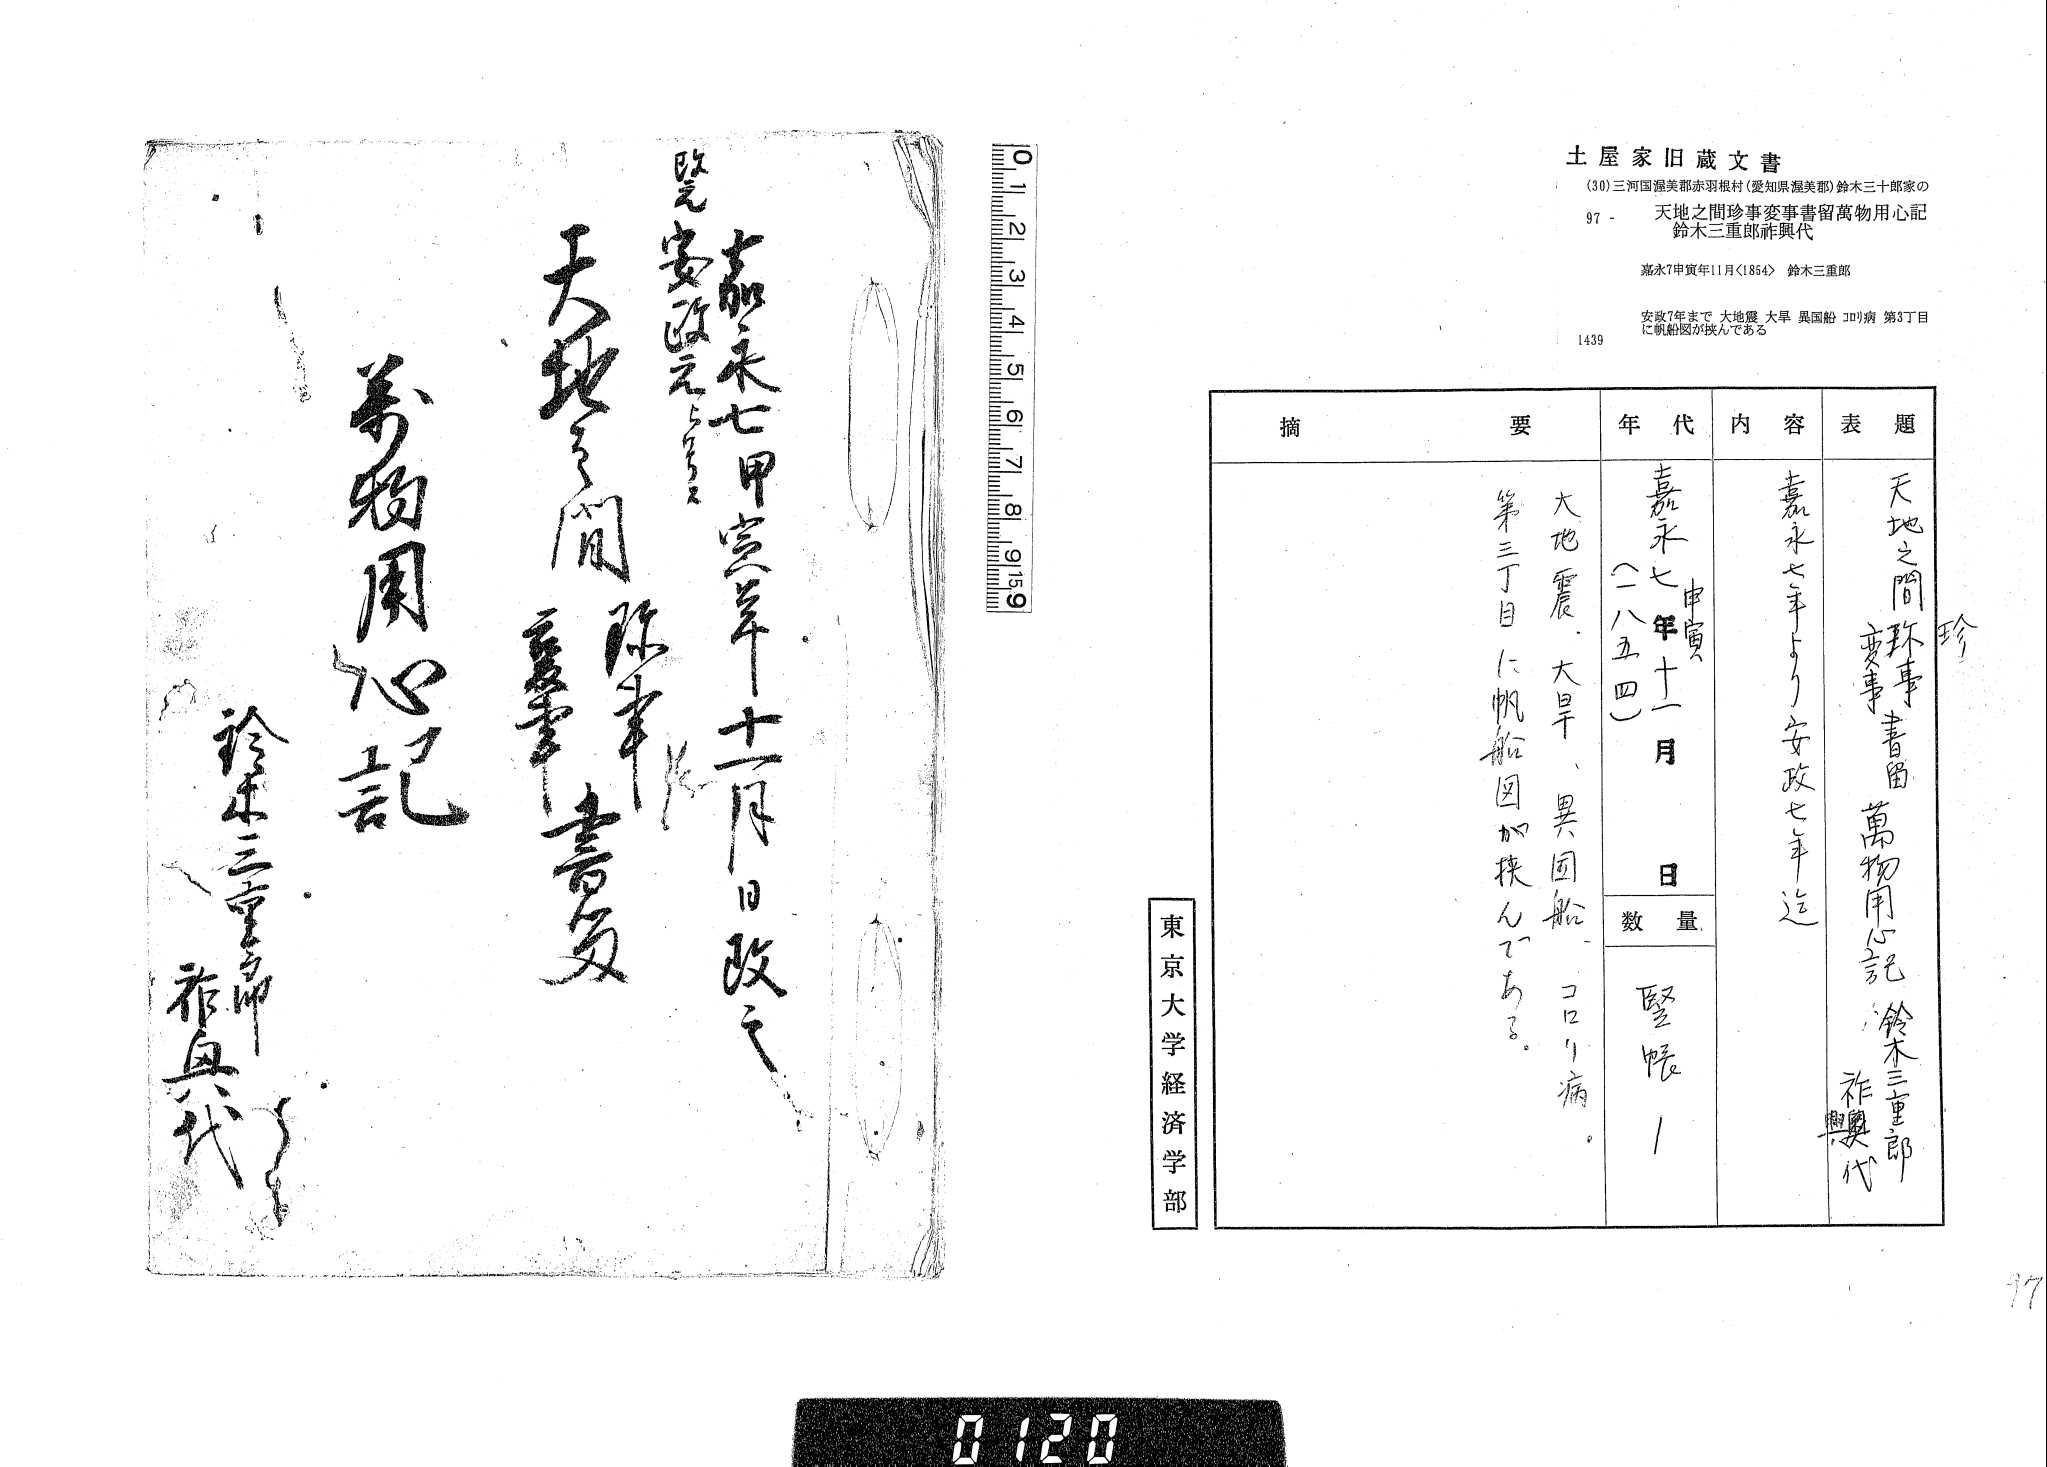 土屋家旧蔵文書
(30)三河国渥美郡赤羽根村(愛知県渥美郡)鈴木三十郎家の
97 - 天地之間珍事変事書留萬物用心記
鈴木三重郎祚興代
嘉永7申寅年11月<1854> 鈴木三重郎
安政7年まで 大地震 大旱 異国船 コロリ病 第3丁目
に帆船図が挟んである
1439
表題
天地之間珎事変事書留 萬物用心記 鈴木三重郎
祚興代
珍
興
内容
嘉永七年より安政七年迄
年代
嘉永七年十一月 日
申寅
(一八五四)
数量
竪帳 1
摘要
大地震、大旱、異国船、コロリ病。
第三丁目に帆船図が挟んである。
東京大学経済学部
97
0 1 2 3 4 5 6 7 8 9 15 9
嘉永七甲寅年十一月日改之
改元安政元与号ス
天地之間珎事変事書留
萬物用心記
鈴木三重郎
祚興代
0120